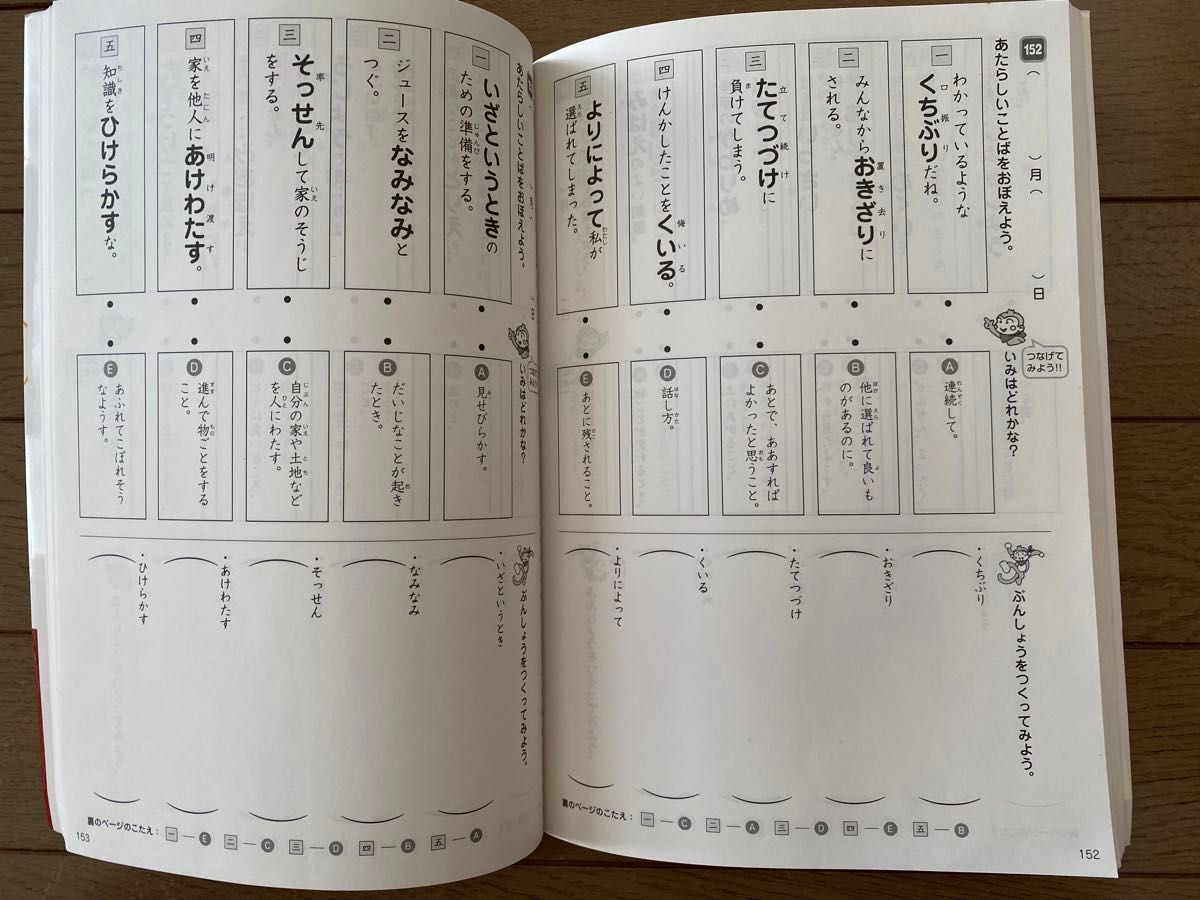 152
( )月( )日
あたらしいことばをおぼえよう。
一
わかっているような
くちぶりだね。
口振り
二
みんなから おきざりに
置き去り
される。
三
たてつづけに
立て続け
負けてしまう。
ま
四
けんかしたことを くいる。
悔いる
五
よりによって 私が
わたし
選ばれてしまった。
えら
つなげて
みよう!!
いみはどれかな?
A
連続して。
れんぞく
B
他に選ばれて良いも
ほか えら よ
のがあるのに。
C
あとで、ああすれば
よかったと思うこと。
おも
D
話し方。
はな かた
E
あとに残されること。
のこ
ぶんしょうをつくってみよう。
・くちぶり
・おきざり
・たてつづけ
・くいる
・よりによって
裏のページのこたえ: 一―C 二―A 三―D 四―E 五―B
152
あたらしいことばをおぼえよう。
一
いざというときの
ための準備をする。
じゅんび
二
ジュースをなみなみと
つぐ。
三
そっせんして家のそうじ
率先 いえ
をする。
四
家を他人に あけわたす。
いえ たにん 明け渡す
五
知識を ひけらかすな。
ちしき
いみはどれかな?
A
見せびらかす。
み
B
だいじなことが起き
お
たとき。
C
自分の家や土地など
じぶん いえ とち
を人にわたす。
ひと
D
進んで物ごとをする
すす もの
こと。
E
あふれてこぼれそう
なようす。
ぶんしょうをつくってみよう。
・いざというとき
・なみなみ
・そっせん
・あけわたす
・ひけらかす
裏のページのこたえ: 一―E 二―C 三―D 四―B 五―A
153